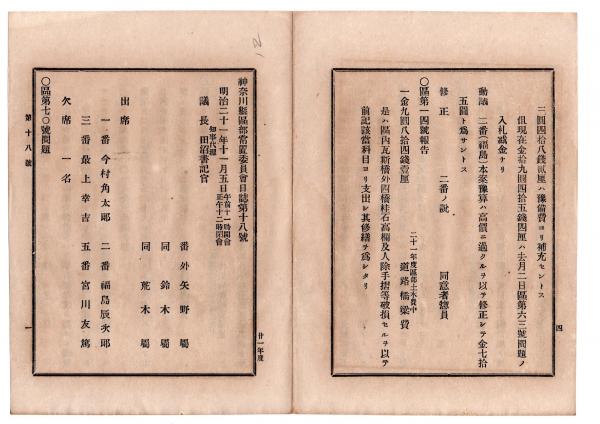 四
三圓四拾八錢貳厘ハ豫備費ヨリ補充セントス
但現在金拾九圓四拾五錢四厘ハ去月二日區第六三號問題ノ
入札減金ナリ
動議 二番(福島)本案豫算ハ高價ニ過クルヲ以テ修正シテ金七拾
五圓ト爲サントス
修正 二番ノ説 同意者惣員
〇區第一四號報告
二十一年度區部土木費中
一金九圓八拾四錢壹厘 道路橋梁費
是ハ區內瓦斯橋外四橋桂石高欄及人除手摺等破損セルヲ以テ
前記該當科目ヨリ支出シ其修繕ヲ爲シタリ
廿一年度
一
神奈川縣區部常置委員會日誌第十八號
明治二十一年十一月五日 午前十一時開會 正午十二時閉會
議長 知事代理 田沼書記官
番外 矢野屬
同 鈴木屬
同 荒木屬
出席
一番 今村角太郎 二番 福島辰次郎
三番 最上幸吉 五番 宮川友篤
欠席 一名
〇區第七〇號問題
第十八號